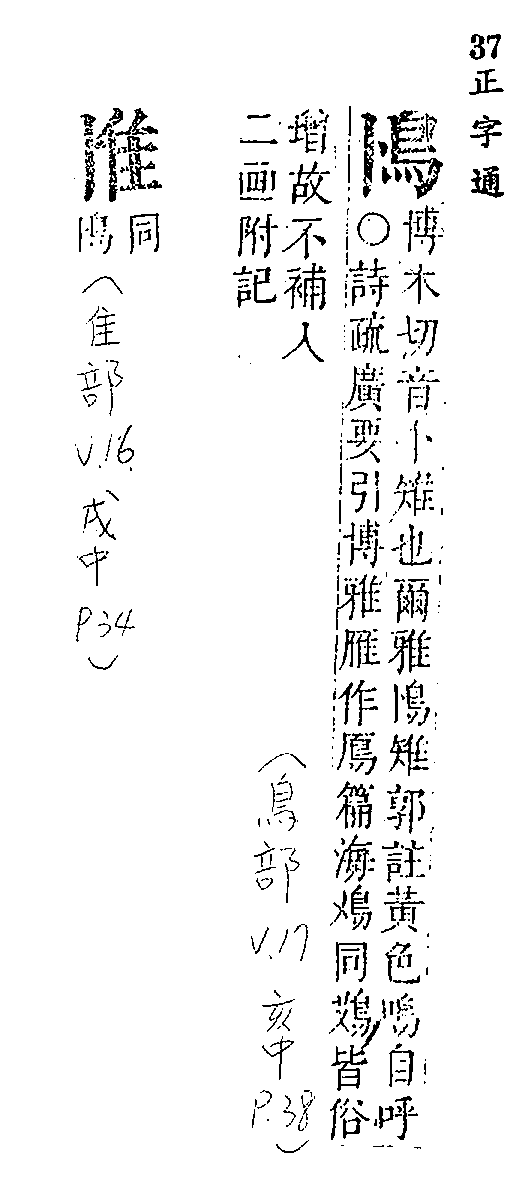 37正字通
鳪
博木切音卜雉也爾雅鳪雉郭註黃色鳴自呼
〇詩疏廣要引博雅雁作鴈篇海同皆俗
增故不補人
二画附記
(鳥部 V.17 亥中 P.38)
同
鳪
(隹部 V.16. 戌中 P34)